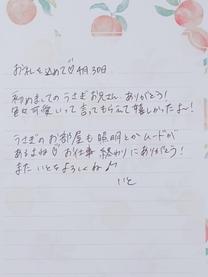 お礼を込めて♡4月30日
初めましてのうさぎお兄さん、ありがとう!
可愛いって言ってもらえて嬉しかったよ〜!
うさぎのお部屋も照明とかムードが
あるよね♡お仕事終わりにありがとう!
またいとをよろしくね♪
いと